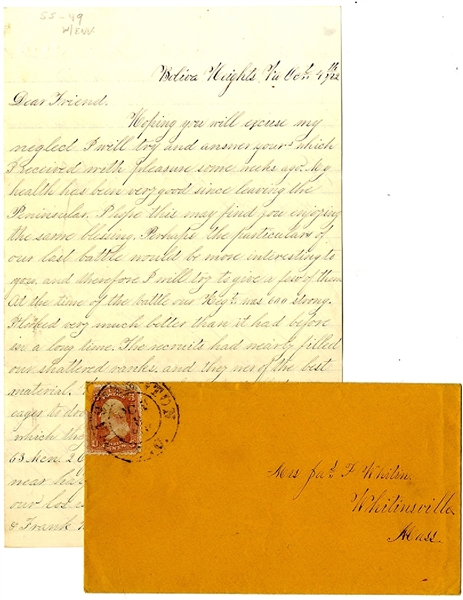 SS-49
W/ENV.
Boliva Heights, Va Oct. 4th /62
Dear Friend.
Hoping you will excuse my
neglect I will try and answer yours which
I received with pleasure some weeks ago. My
health has been very good since leaving the
Peninsular. I hope this may find you enjoying
the same blessing. Perhaps the particulars of
our last battle would be more interesting to
you, and therefore I will try to give a few of them
At the time of the battle our Regt. was 600 strong.
It looked very much better than it had before
in a long time. The recruits had nearly filled
our shattered ranks, and they were of the best
material.
eager to do
which the
63 Men. 26
near
our loss
& Frank
Mrs Jas. F Whitin
Whitinsville
Mass.